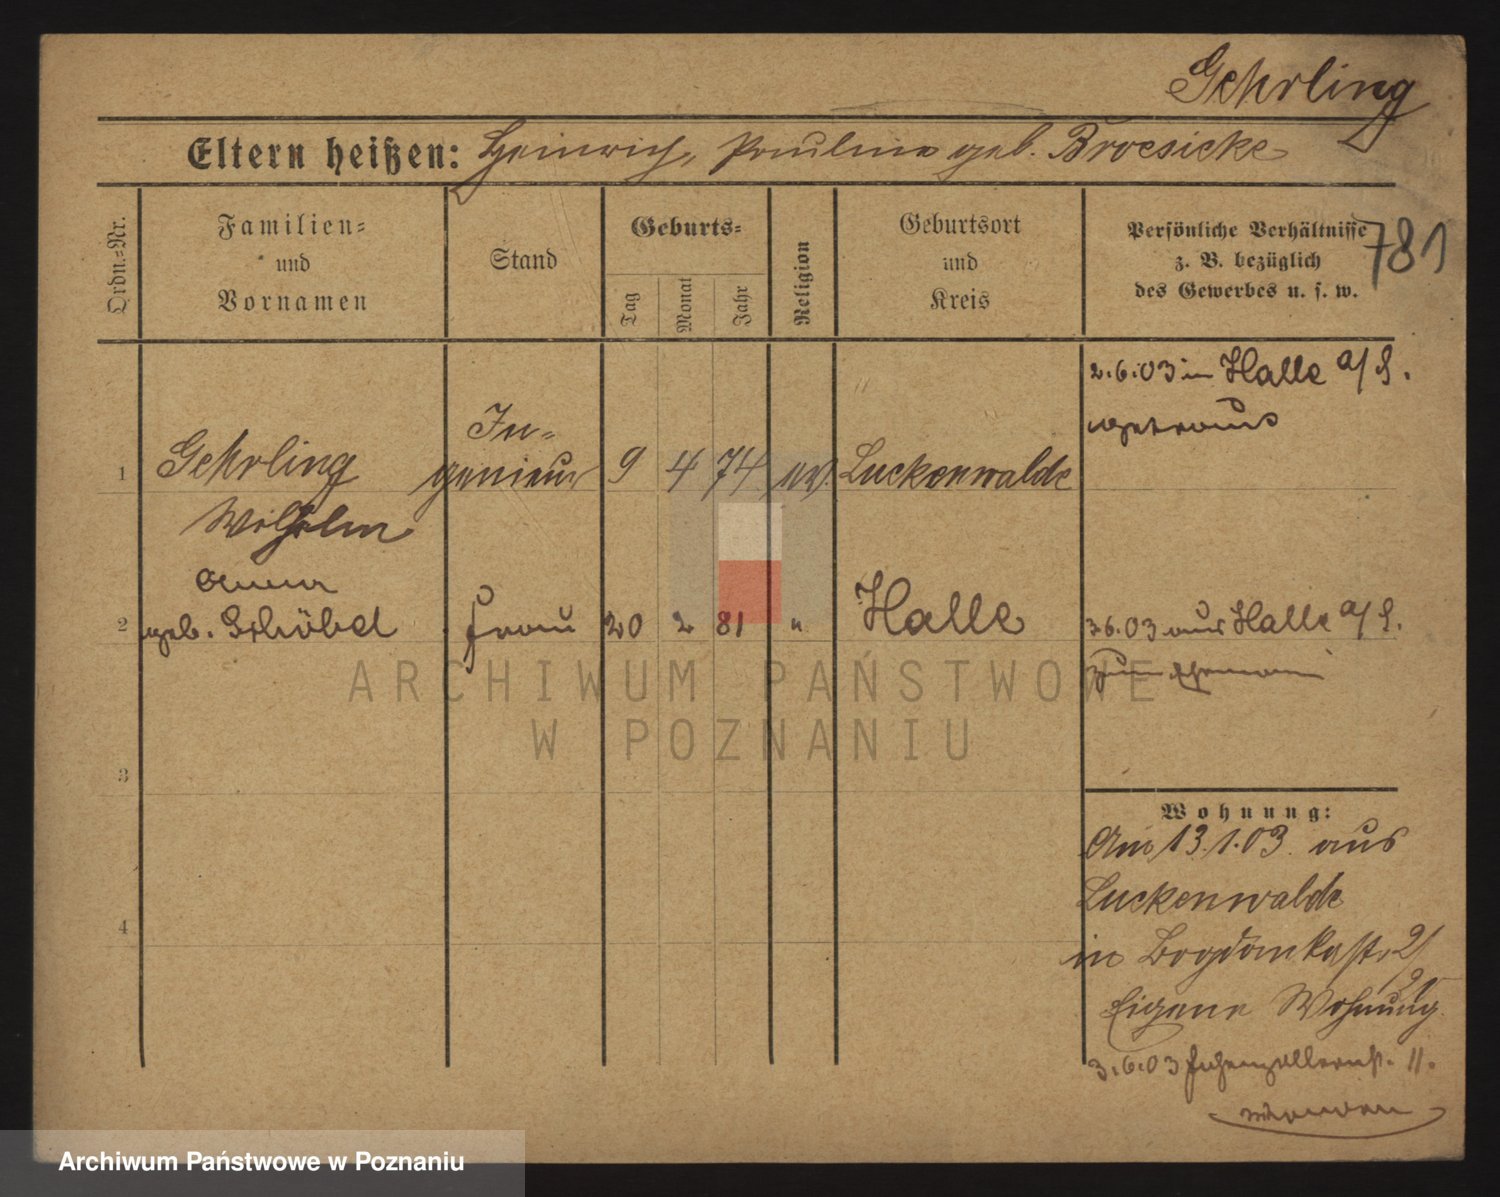 Gehrling
Eltern heißen: Heinrich, Pauline geb. Broesicke
781
Ordn.-Nr.
Familien-
und
Vornamen
Stand
Geburts-
Tag
Monat
Jahr
Religion
Geburtsort
und
Kreis
Persönliche Verhältnisse
z. B. bezüglich
des Gewerbes u. s. w.
2.6.03 in Halle a/S.
getraut
1 Gehrling In-
genieur 9 4 74 ev. Luckenwalde
Wilhelm
Anna
2 geb. Schöbel Frau 20 2 81 " Halle
3.6.03 aus Halle a/S.
zum Ehemann
3
4
Wohnung:
Am 13.1.03 aus
Luckenwalde
in Bogdankastr. 2/
Eigene Wohnung
3.6.03 Hohenzollernst. 11.
ARCHIWUM PAŃSTWOWE
W POZNANIU
Archiwum Państwowe w Poznaniu